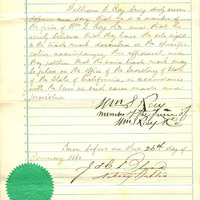 William S. Ray being duly sworn
deposes and says that he is a member of
the firm of Wm S. Ray & Co. and that he
verily believes that they have the sole right
to the trade mark described in the specifi-
cation accompanying. For affidavit
they petition that the same trade mark may
be filed in the office of the Secretary of State
of the State of California in accordance
with the law in such cases made and
provided
Wm S Ray
member of the firm of
Wm S Ray & Co
Sworn before me this 26th day of
January 188
Notary Public